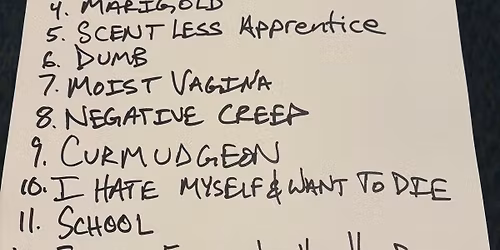 4. MARIGOLD
5. SCENTLESS Apprentice
6. DUMB
7. MOIST VAGINA
8. NEGATIVE CREEP
9. CURMUDGEON
10. I HATE MYSELF & WANT TO DIE
11. SCHOOL